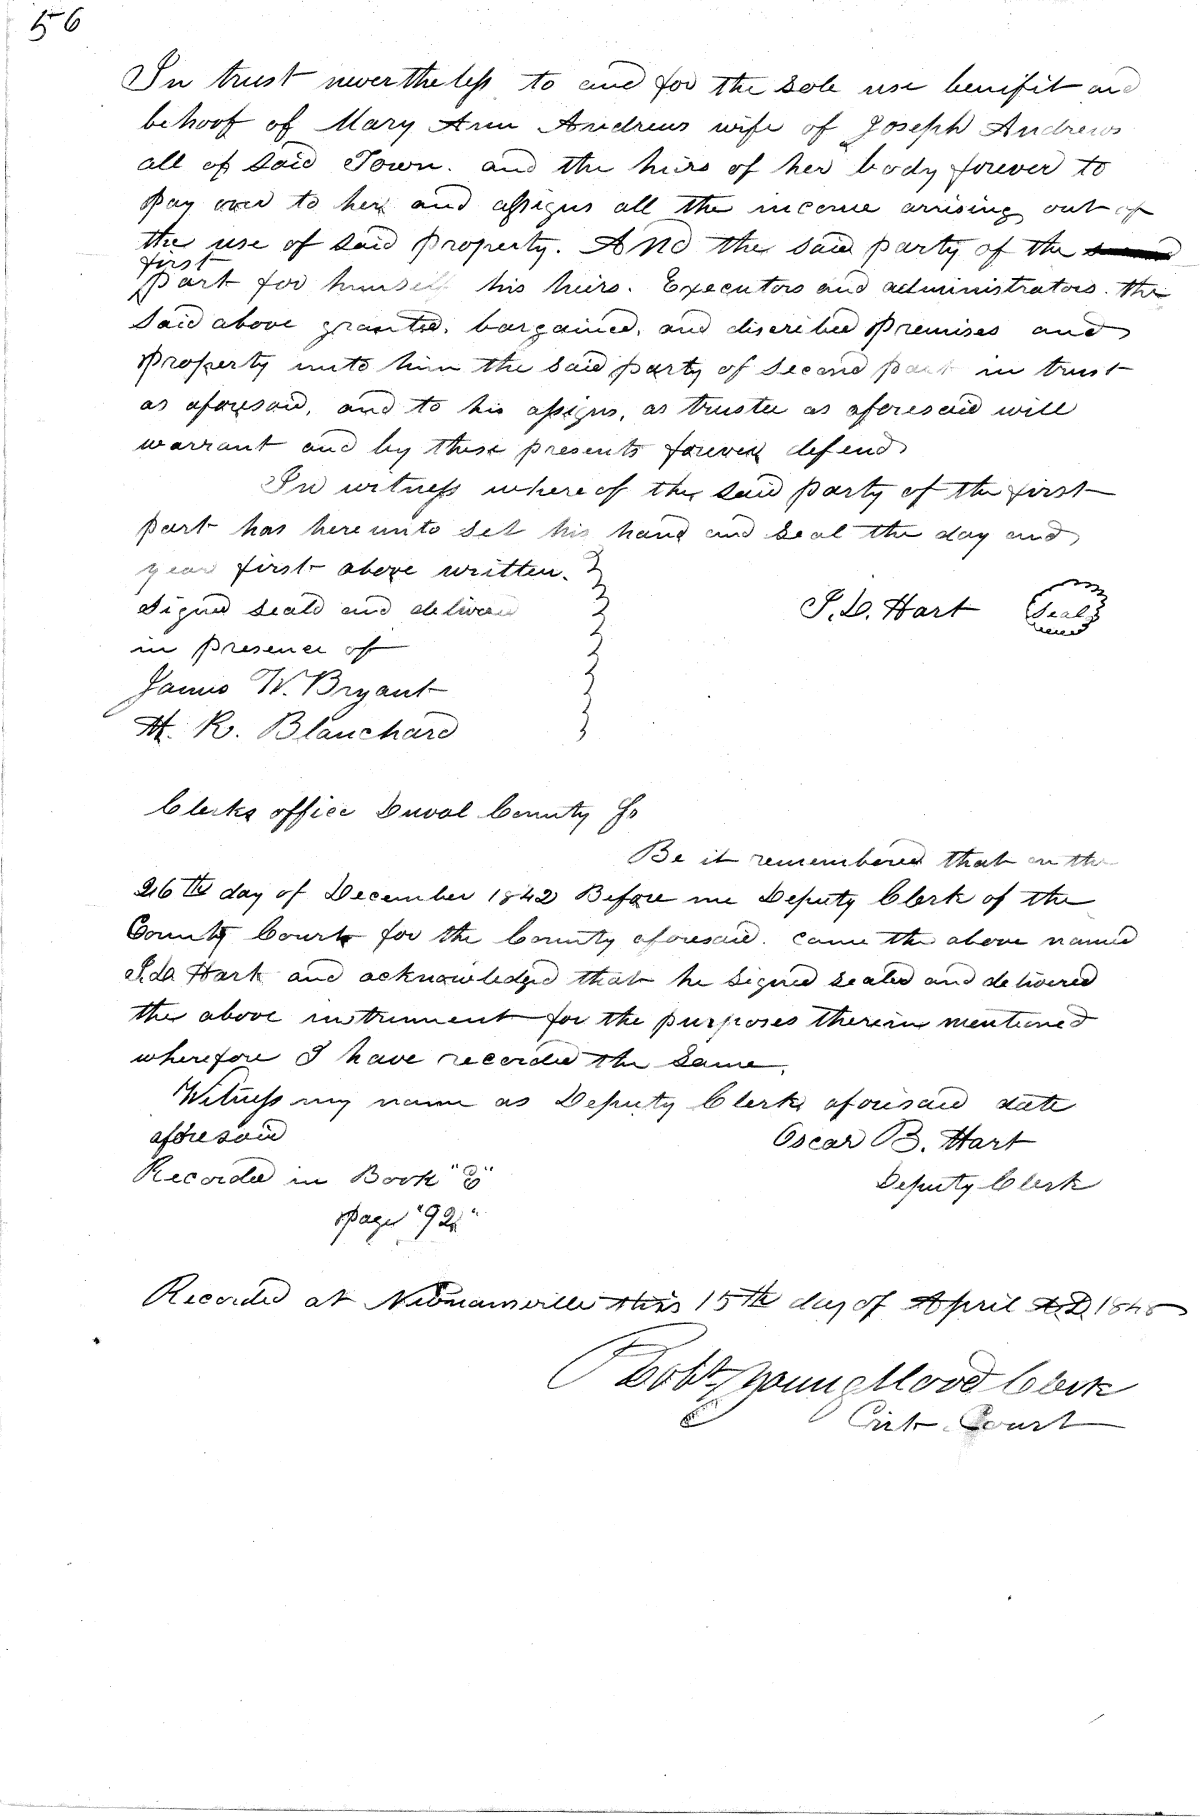 56
In trust nevertheless to and for the sole use benefit and
behoof of Mary Ann Andrews wife of Joseph Andrews
all of said Town. and the heirs of her body forever to
pay over to her and assigns all the income arrising out of
the use of said property. And the said party of the
first
part for himself his heirs. Executors and administrators. the
said above granted, bargained, and discribed premises and
property unto him the said party of second part in trust
as aforesaid, and to his assigns, as trustee as aforesaid will
warrant and by these presents forever defend
In witness whereof the said party of the first
part has hereunto set his hand and seal the day and
year first above written.
Signed seald and delivered
I.D. Hart Seal
in presence of
James W. Bryant
H. R. Blanchard
Clerks office Duval County Ss
Be it remembered that on the
26th day of December 1842 Before me Deputy Clerk of the
County Court for the County aforesaid. came the above named
I.D. Hart and acknowledged that he signed sealed and delivered
the above instrument for the purposes therein mentioned
wherefore I have recorded the same.
Witness my name as Deputy Clerk aforesaid date
aforesaid Oscar B. Hart
Recorded in Book "E" Deputy Clerk
page "92"
Recorded at Newnansville this 15th day of April A.D. 1848
Robt. Youngblood Clerk
Cirt. Court